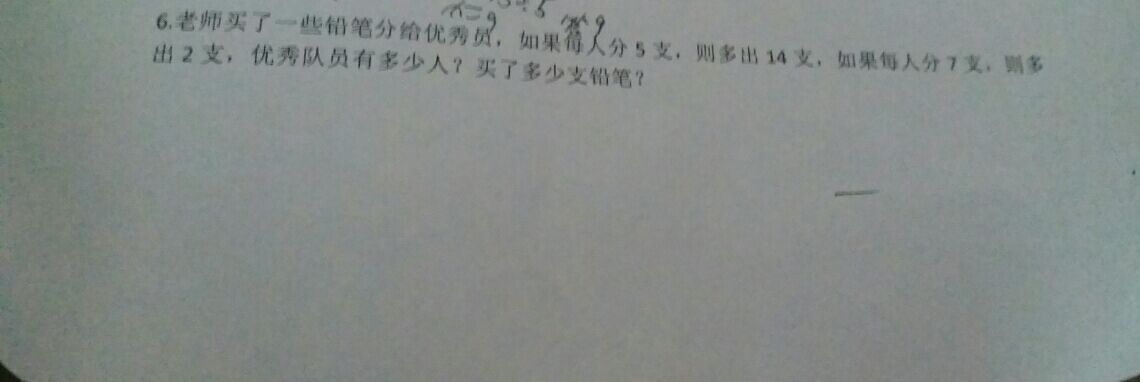 x=9
x 9
6.老师买了一些铅笔分给优秀员，如果每人分5支，则多出14支，如果每人分7支，则多
出2支，优秀队员有多少人？买了多少支铅笔？